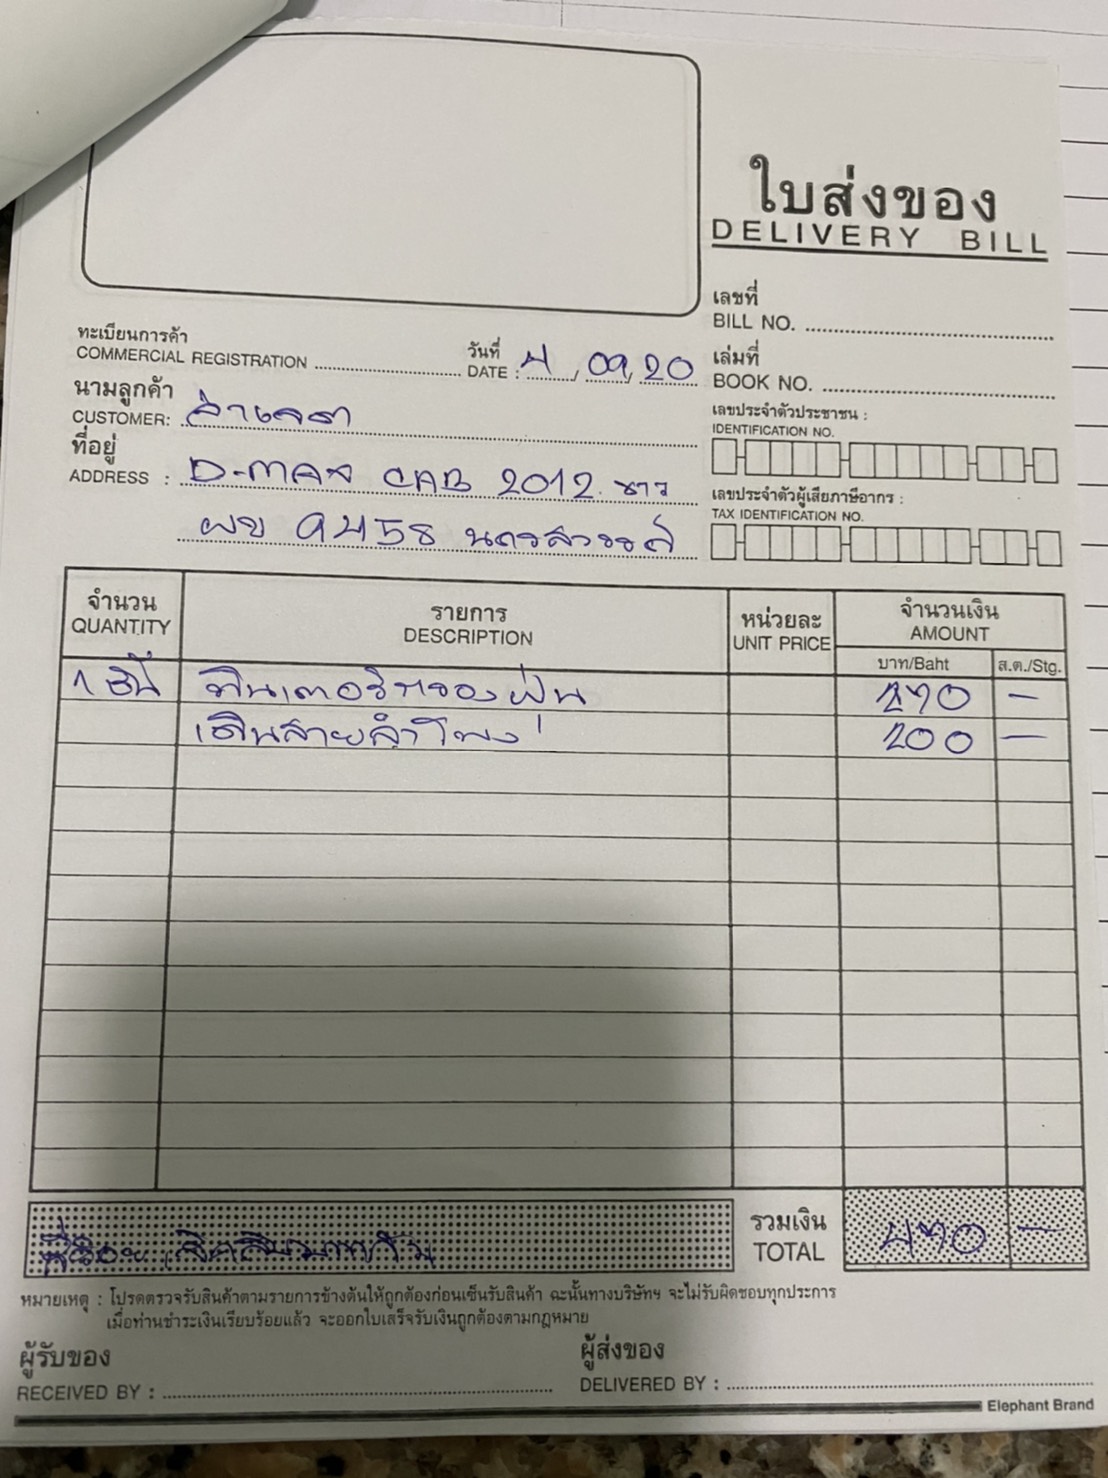 ใบส่งของ
DELIVERY BILL
เลขที่
BILL NO.
ทะเบียนการค้า
COMMERCIAL REGISTRATION
วันที่
DATE : 4, 09, 20
เล่มที่
BOOK NO.
นามลูกค้า
CUSTOMER:
เลขประจำตัวประชาชน :
IDENTIFICATION NO.
ที่อยู่
ADDRESS : D-MAX CAB 2012 ขาว
ผข 9458 นครสวรรค์
เลขประจำตัวผู้เสียภาษีอากร :
TAX IDENTIFICATION NO.
จำนวน
QUANTITY
รายการ
DESCRIPTION
หน่วยละ
UNIT PRICE
จำนวนเงิน
AMOUNT
บาท/Baht ส.ต./Stg.
1 270 -
เดินสายลำโพง 200 -
รวมเงิน
TOTAL 470 -
หมายเหตุ : โปรดตรวจรับสินค้าตามรายการข้างต้นให้ถูกต้องก่อนเซ็นรับสินค้า ฉะนั้นทางบริษัทฯ จะไม่รับผิดชอบทุกประการ
เมื่อท่านชำระเงินเรียบร้อยแล้ว จะออกใบเสร็จรับเงินถูกต้องตามกฎหมาย
ผู้รับของ
RECEIVED BY :
ผู้ส่งของ
DELIVERED BY :
Elephant Brand